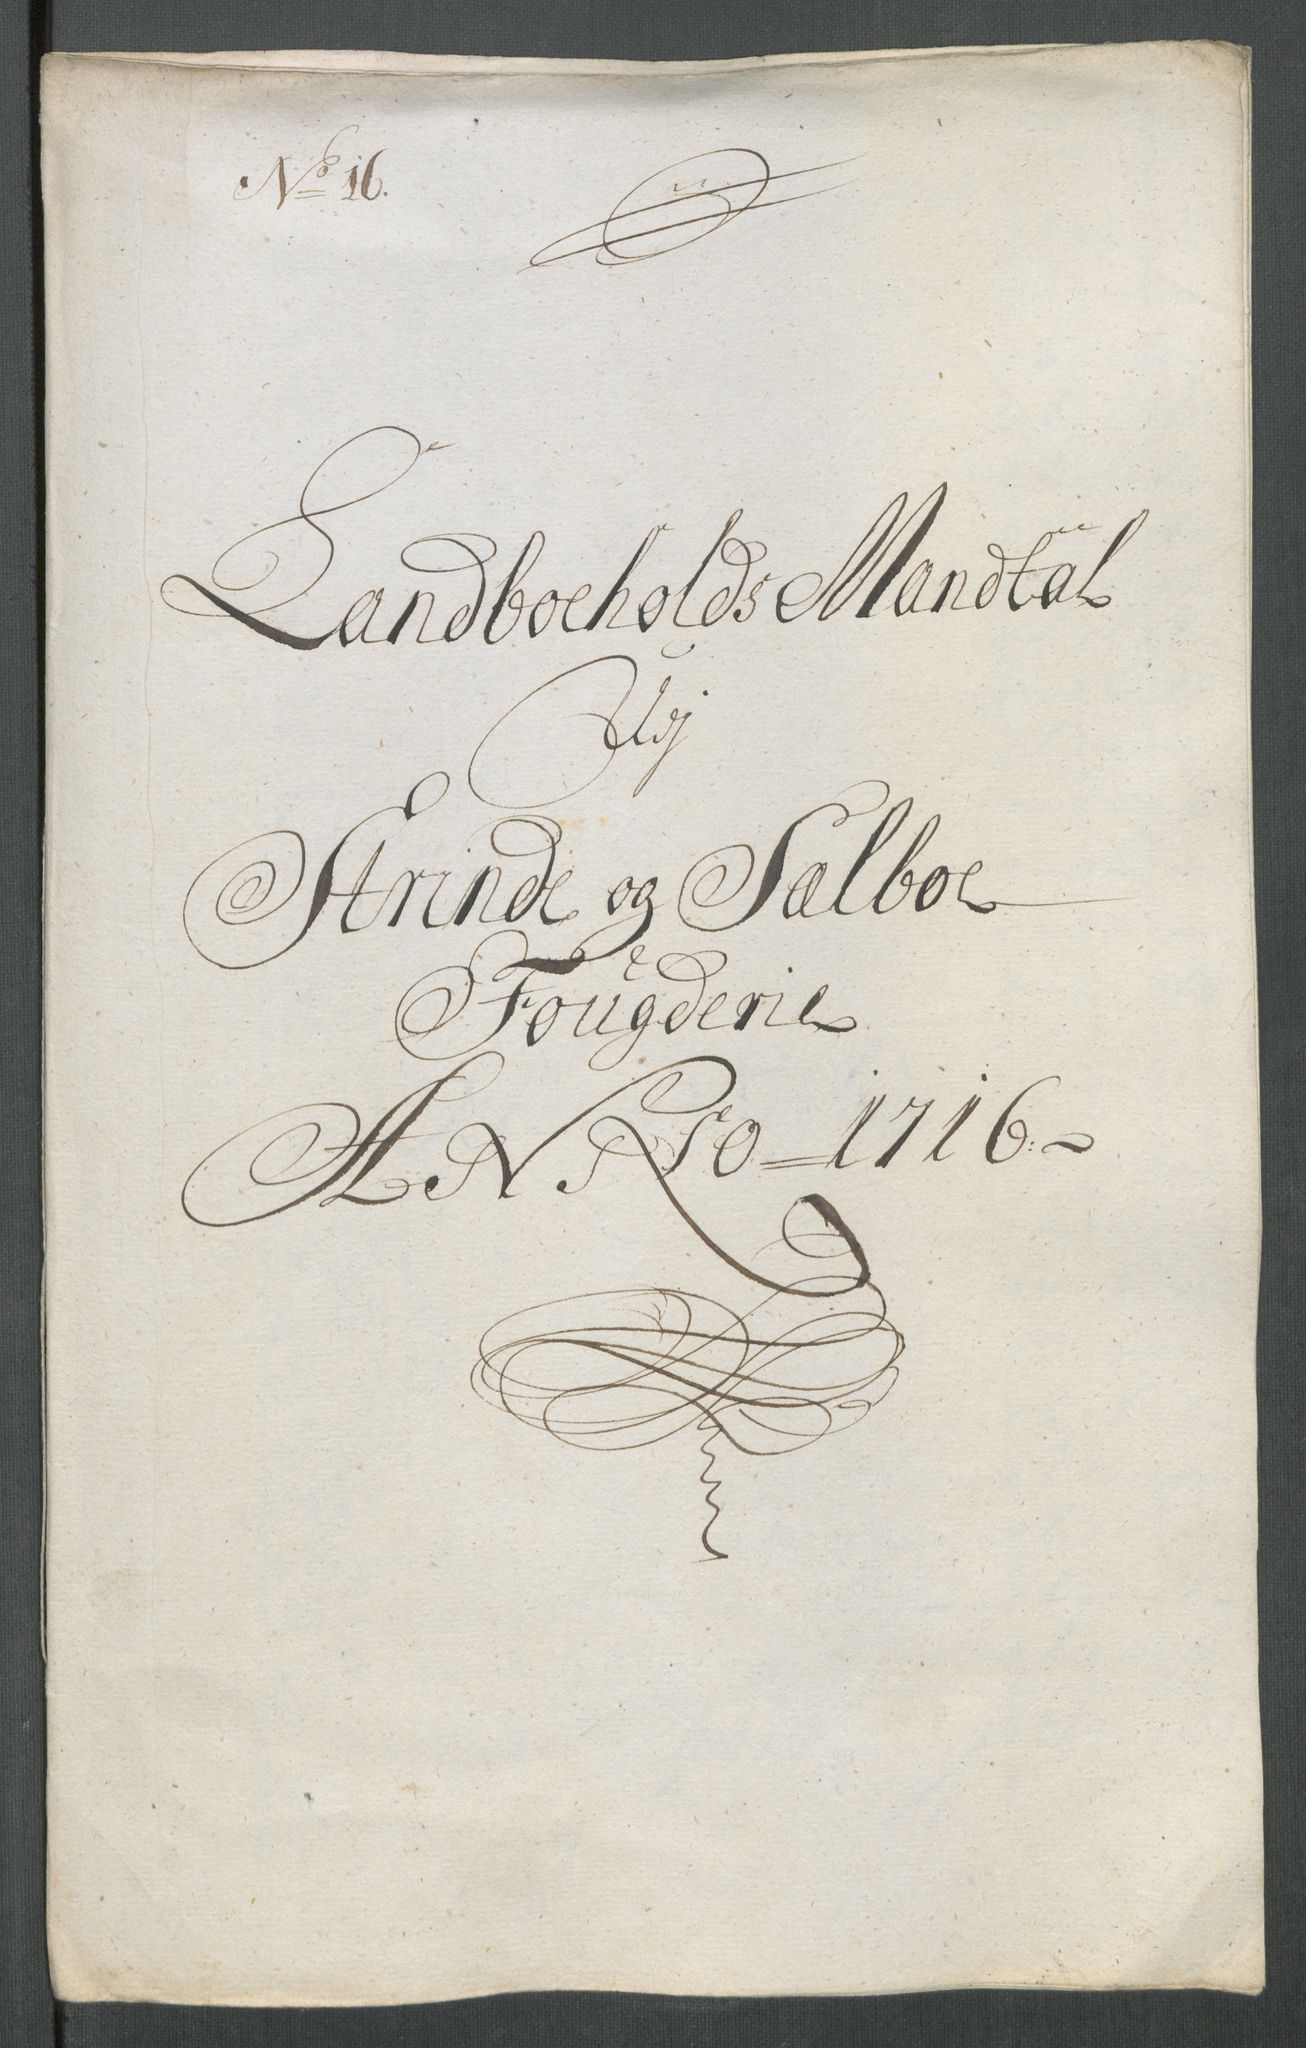 No 16.
Landboeholds Mandtal
Udj
Strinde og Sælboe
Fougderie
ANNO 1716.